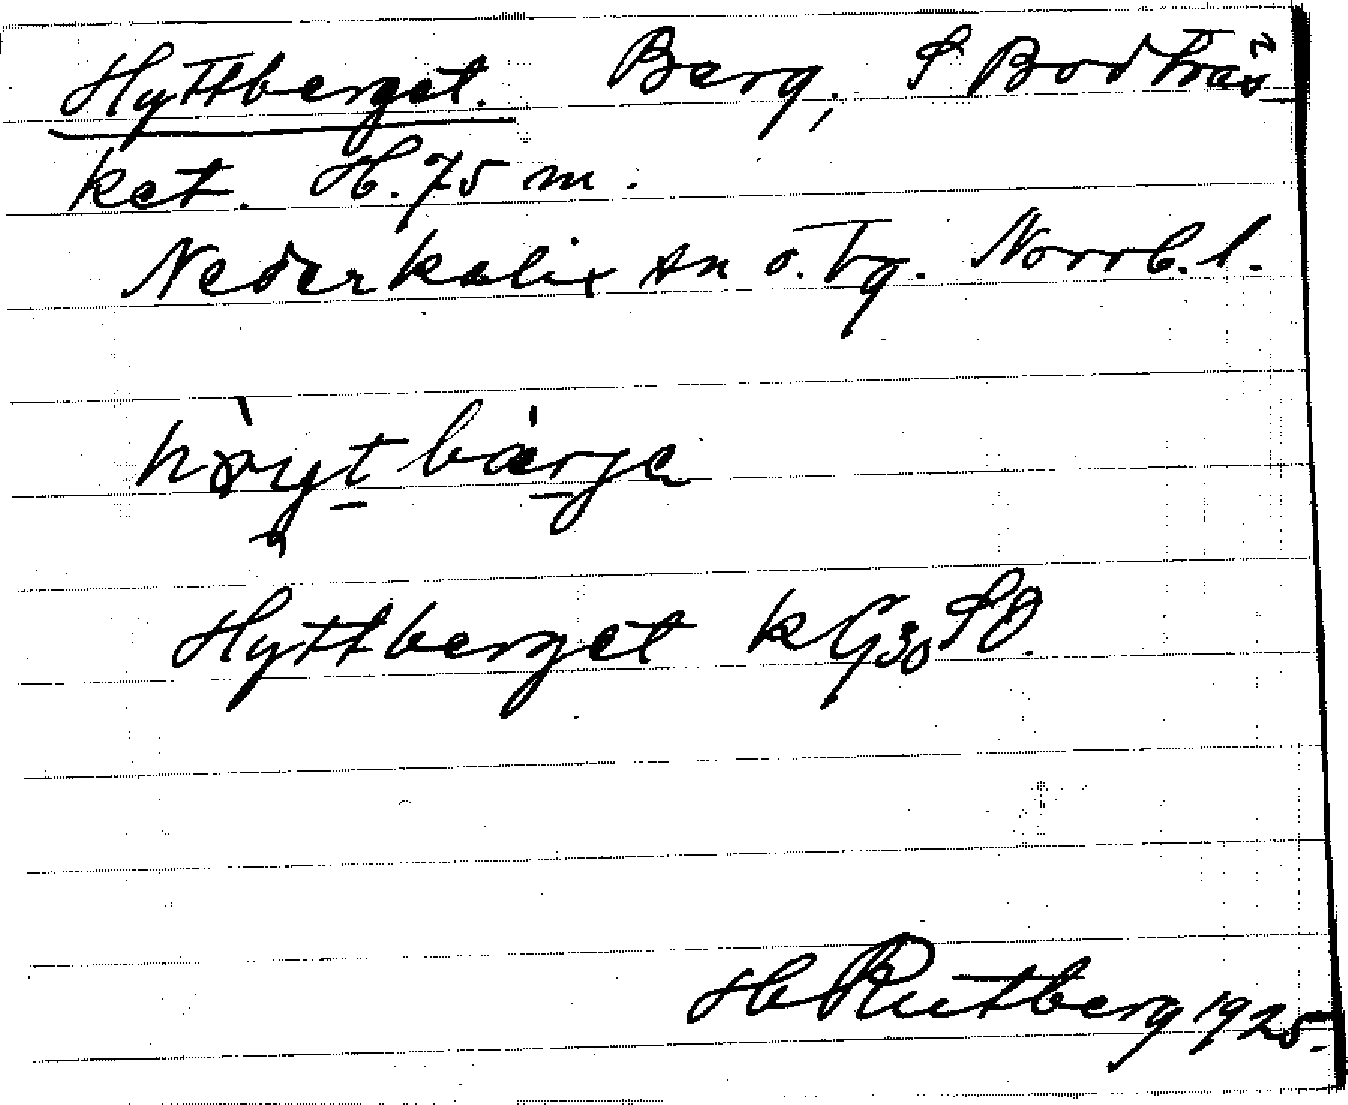 Hyttberget. Berg, S Bodträs
ket. H. 75 m.
Nederkalix sn o. tg. Norrb. l.
Hyttberget k G30 SO.
H Rutberg 1925.